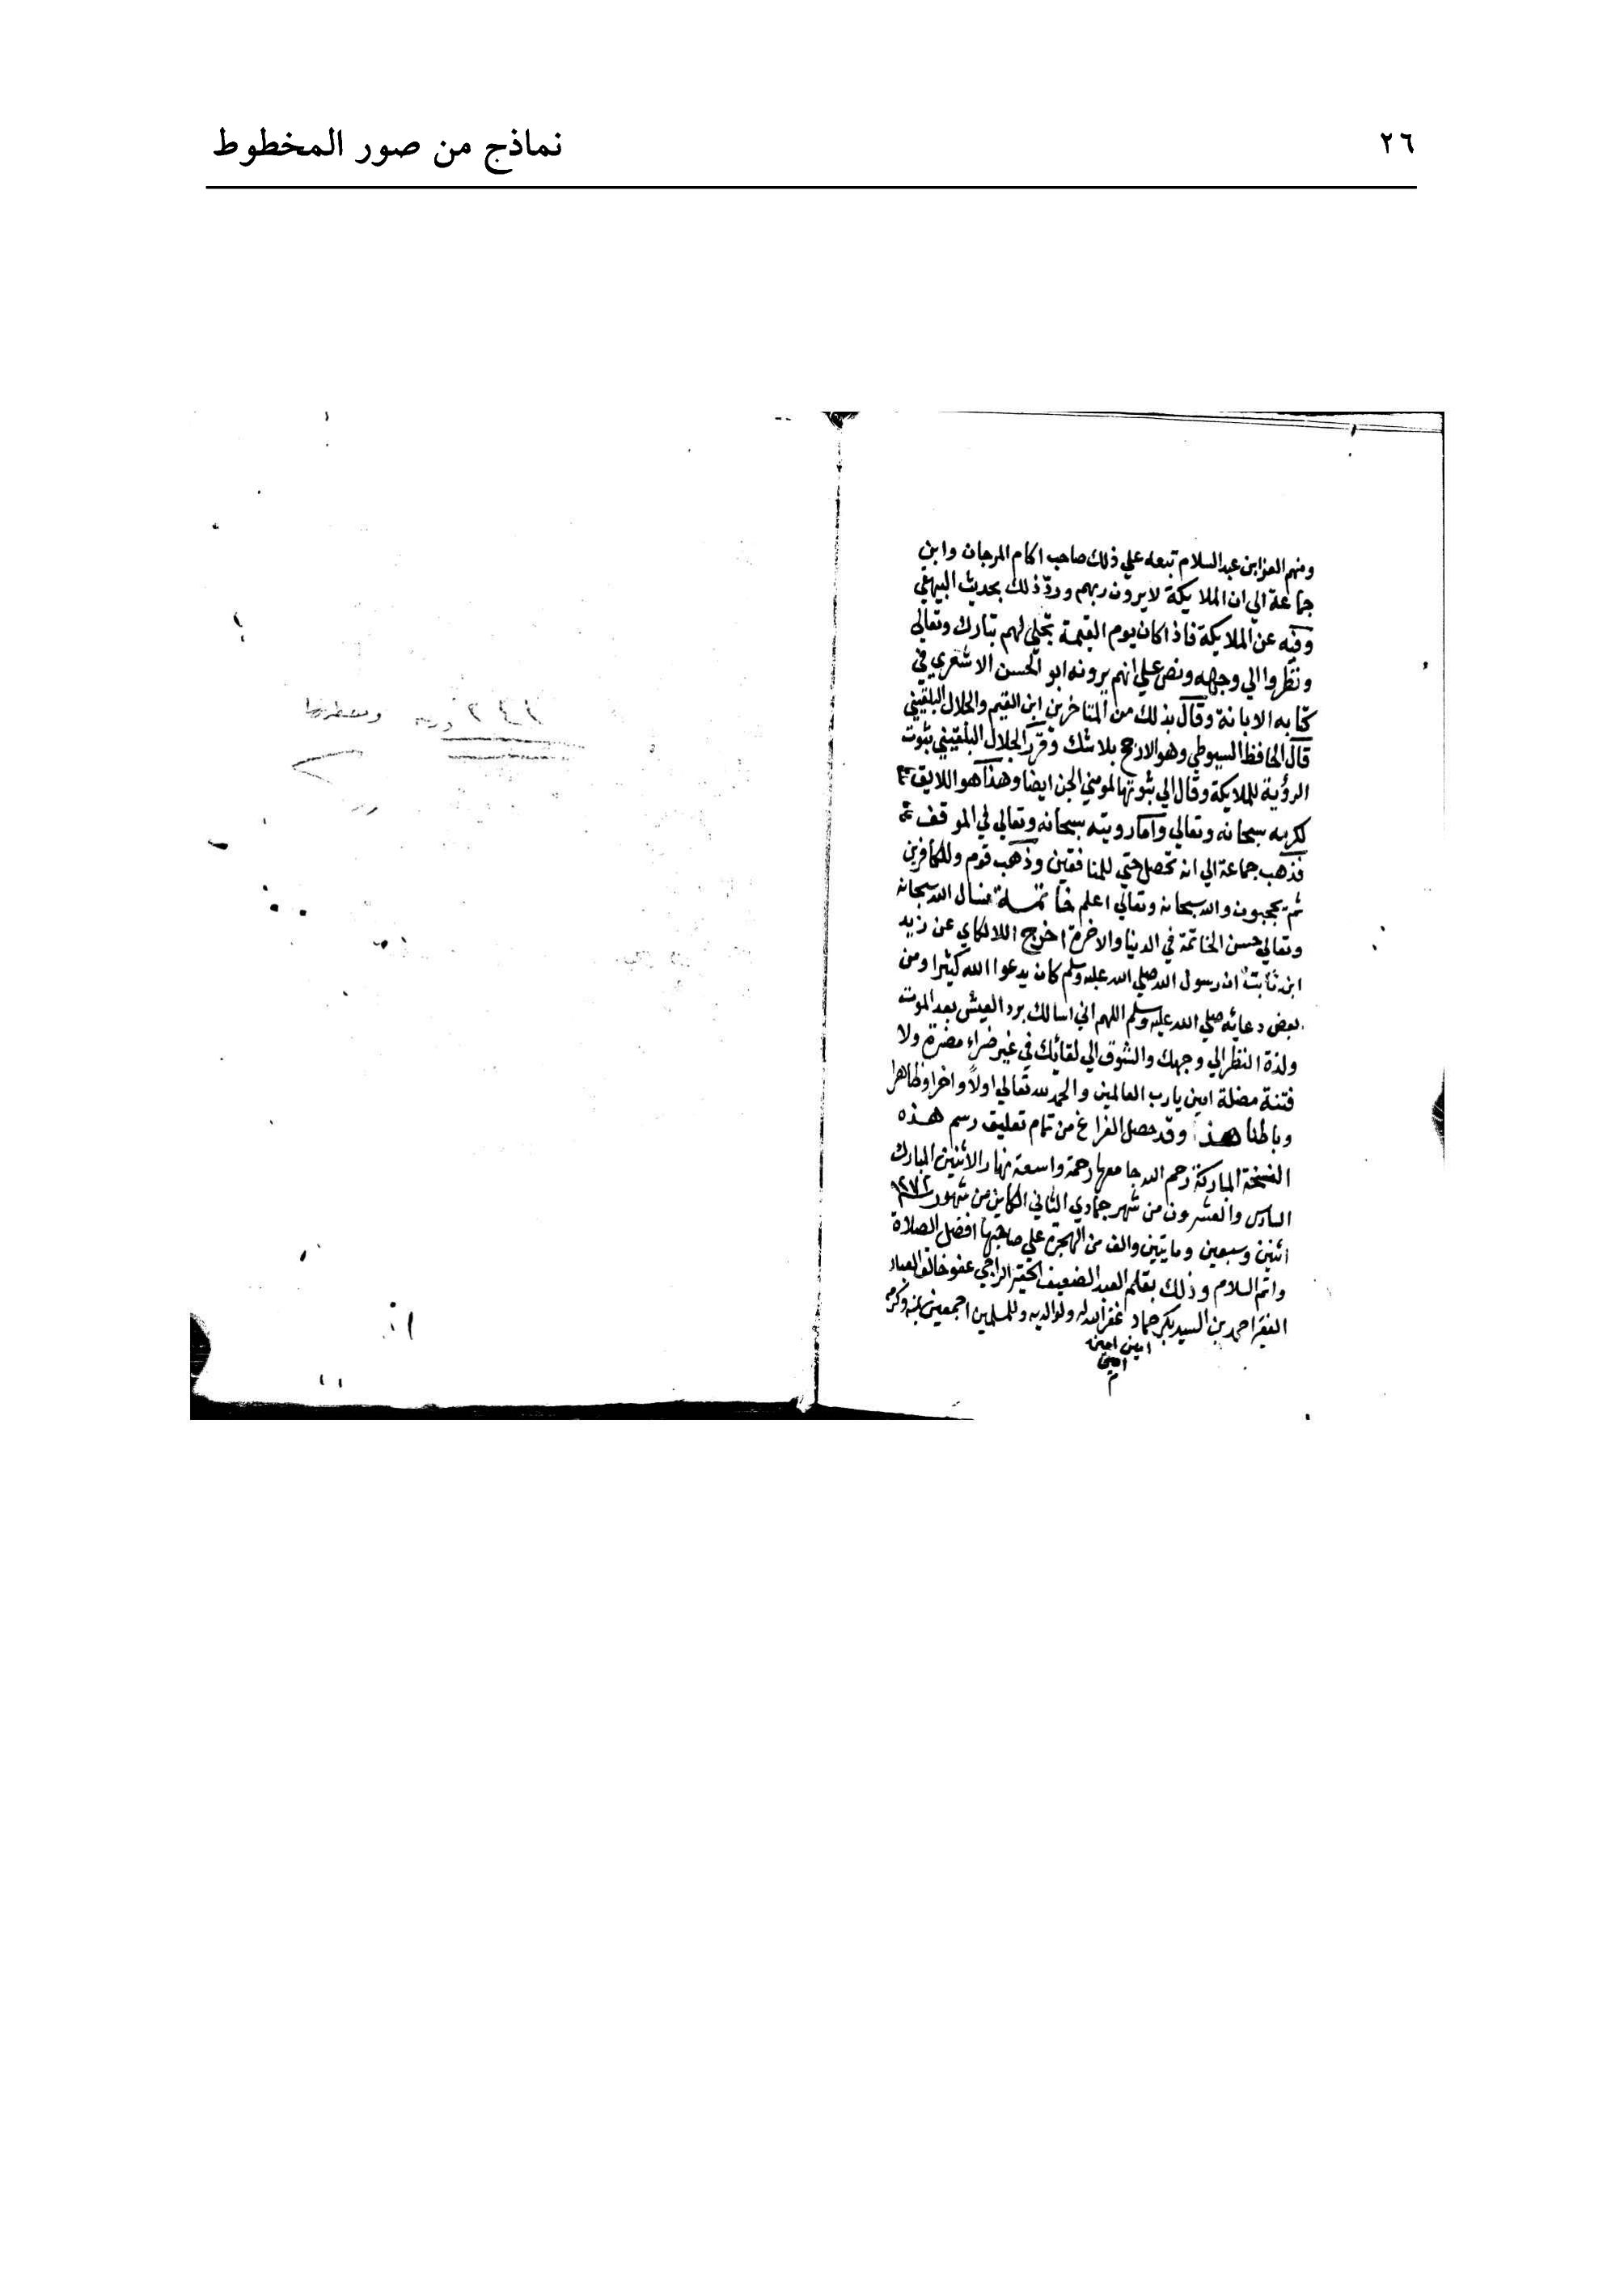 ٢٦
نماذج من صور المخطوط
ومنهم العز ابن عبد السلام تبعه علي ذلك صاحب اكام المرجان وابن
جماعة الي ان الملايكة لا يرون ربهم وردّ ذلك بحديث البيهقي
وفيه عن الملايكة فاذا كان يوم القيمة تجلي لهم تبارك وتعالي
ونظروا الي وجهه ونص علي انهم يرونه ابو الحسن الاشعري في
كتابه الابانة وقال بذلك من المتاخرين ابن القيم والجلال البلقيني
قال الحافظ السيوطي وهو الارجح بلا شك وقرر الجلال البلقيني ثبوت
الرؤية للملايكة وقال الي ثبوتها لمومني الجن ايضا وهذا هو اللايق
لكرمه سبحانه وتعالي واما رويته سبحانه وتعالي في الموقف
فذهب جماعة الي انه تحصل حتي للمنافقين وذهب قوم وللكافرين
ثم يحجبون والله سبحانه وتعالي اعلم خاتمة نسال الله سبحانه
وتعالي حسن الخاتمة في الدنيا والاخرة اخرج اللالكاي عن زيد
ابن ثابت ان رسول الله صلي الله عليه وسلم كان يدعوا الله كثيرا ومن
بعض دعائه صلي الله عليه وسلم اللهم اني اسالك برد العيش بعد الموت
ولذة النظر الي وجهك والشوق الي لقائك في غير ضراء مضرة ولا
فتنة مضلة امين يارب العالمين والحمد لله تعالي اولاً واخرا وظاهرا
وباطنا هذا وقد حصل الفراغ من تمام تعليق رسم هذه
النسخة المباركة رحم الله جامعها رحمة واسعة نهار الاثنين المبارك
السادس والعشرون من شهر جمادي الثاني الكاين من شهور ١٢٧٢
اثنين وسبعين ومايتين والف من الهجرة علي صاحبها افضل الصلاة
واتم السلام وذلك بقلم العبد الضعيف الحقير الراجي عفو خالق العباد
الفقير احمد بن السيد بكر حماد غفر الله له ولوالديه وللمسلمين اجمعين بمنه وكرمه
امين امين
امين
م